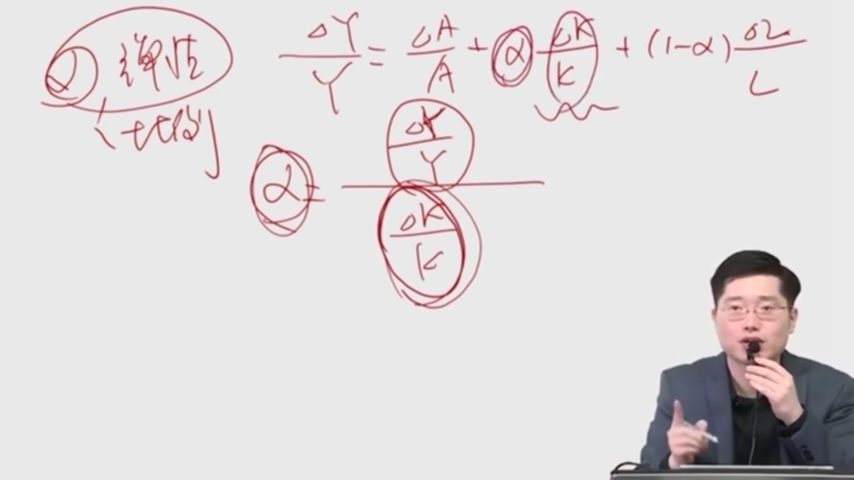 α 弹性
ΔY/Y = ΔA/A + α ΔK/K + (1-α) ΔL/L
α = ΔY/Y
ΔK/K